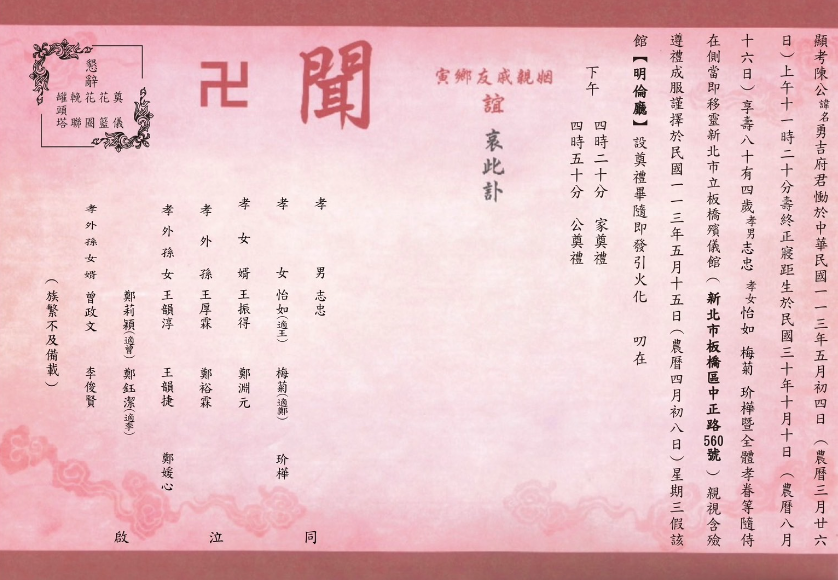 顯考陳公諱名勇吉府君慟於中華民國一一三年五月初四日(農曆三月廿六
日)上午十一時二十分壽終正寢距生於民國三十年十月十日(農曆八月
十六日)享壽八十有四歲孝男志忠 孝女怡如 梅菊 玠樺暨全體孝眷等隨侍
在側當即移靈新北市立板橋殯儀館(新北市板橋區中正路560號)親視含殮
遵禮成服謹擇於民國一一三年五月十五日(農曆四月初八日)星期三假該
館【明倫廳】設奠禮畢隨即發引火化 叨在
下午
四時二十分 家奠禮
四時五十分 公奠禮
姻親戚友鄉寅
誼
哀此訃
聞
卍
懇辭
奠儀
花籃
花圈
輓聯
罐頭塔
孝男 志忠
孝女 怡如(適王) 梅菊(適鄭) 玠樺
孝女婿 王振得 鄭淵元
孝外孫 王厚霖 鄭裕霖
孝外孫女 王韻淳 王韻捷 鄭媛心
鄭莉穎(適曾) 鄭鈺潔(適李)
孝外孫女婿 曾政文 李俊賢
(族繁不及備載)
同
泣
啟